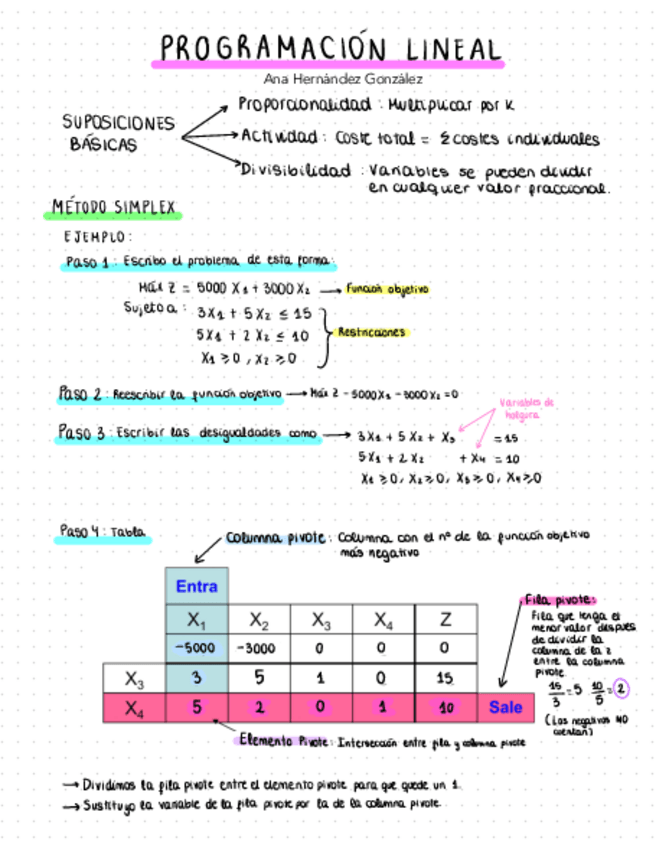 PROGRAMACIÓN LINEAL
Ana Hernández González
SUPOSICIONES
BÁSICAS
Proporcionalidad : Multiplicar por K
Actividad : Coste total = Σ costes individuales
Divisibilidad : Variables se pueden dividir
en cualquier valor fraccional.
MÉTODO SIMPLEX
EJEMPLO:
Paso 1 : Escribo el problema de esta forma:
Máx Z = 5000 X1 + 3000 X2 → Función objetivo
Sujeto a : 3X1 + 5 X2 ≤ 15
5X1 + 2 X2 ≤ 10
X1 ≥ 0 , X2 ≥ 0
Restricciones
Paso 2 : Reescribir la función objetivo → Máx Z - 5000X1 - 3000 X2 = 0
Variables de
holgura
Paso 3 : Escribir las desigualdades como → 3X1 + 5 X2 + X3 = 15
5X1 + 2 X2 + X4 = 10
X1 ≥ 0, X2 ≥ 0, X3 ≥ 0, X4 ≥ 0
Paso 4 : Tabla
Columna pivote : Columna con el nº de la función objetivo
más negativo
Entra
X1 X2 X3 X4 Z
-5000 -3000 0 0 0
X3 3 5 1 0 15
X4 5 2 0 1 10 Sale
Fila pivote:
Fila que tenga el
menor valor después
de dividir la
columna de la z
entre la columna
pivote
15/3 = 5 10/5 = 2
(Los negativos NO
cuentan)
Elemento Pivote : Intersección entre fila y columna pivote
→ Dividimos la fila pivote entre el elemento pivote para que quede un 1.
→ Sustituyo la variable de la fila pivote por la de la columna pivote.